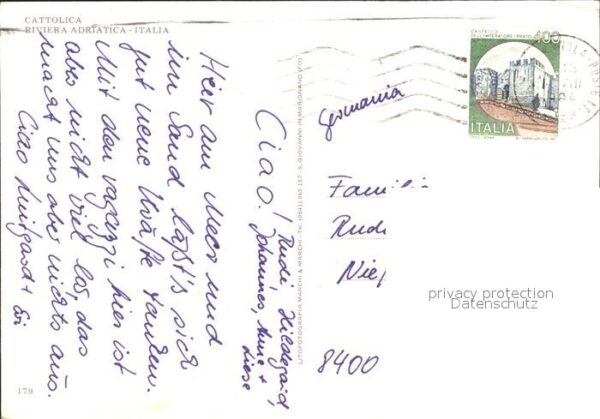 CATTOLICA
RIVIERA ADRIATICA - ITALIA
Ciao! Rudi, Hildegard,
Johannes, Anne +
Liese
Hier am Meer und
im Sand läßt's sich
gut neue Kräfte tanken.
Mit den ragazzi hier ist
also nicht viel los, das
macht uns aber nichts aus.
Ciao Luitgard + Evi
179
LITOFOTOGRAFIA MARCHI & MARCHI - TEL. (0541) 965 157 - S. GIOVANNI IN MARIGNANO (FO)
CASTELLO
DELL'IMPERATORE - PRATO
400
ITALIA
Germania
Famili
Rudi
Nie
8400
privacy protection
Datenschutz